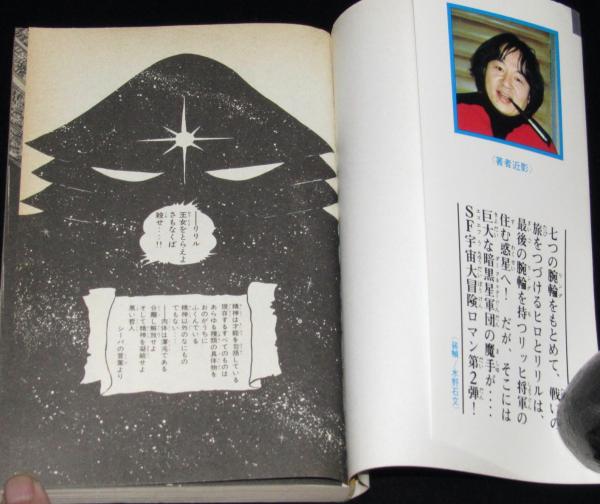 〈著者近影〉
七つの腕輪をもとめて、戦いの
旅をつづけるヒロとリリルは、
最後の腕輪を持つリッヒ将軍の
住む惑星へ! だが、そこには
巨大な暗黒星軍団の魔手が‥‥
SF宇宙大冒険ロマン第2弾!
──リリル
王女をとらえよ
さもなくば
殺せ‥‥!!
精神は才能を包括している
現存するすべてのものは
あらゆる種類の具体物を
おのがうちに
ふくんでいる
精神以外のなにもの
でもない‥‥
──肉体は溶光である
分離し解放せよ
そして精神を凝結せよ
黒い哲人
シーバの言葉より